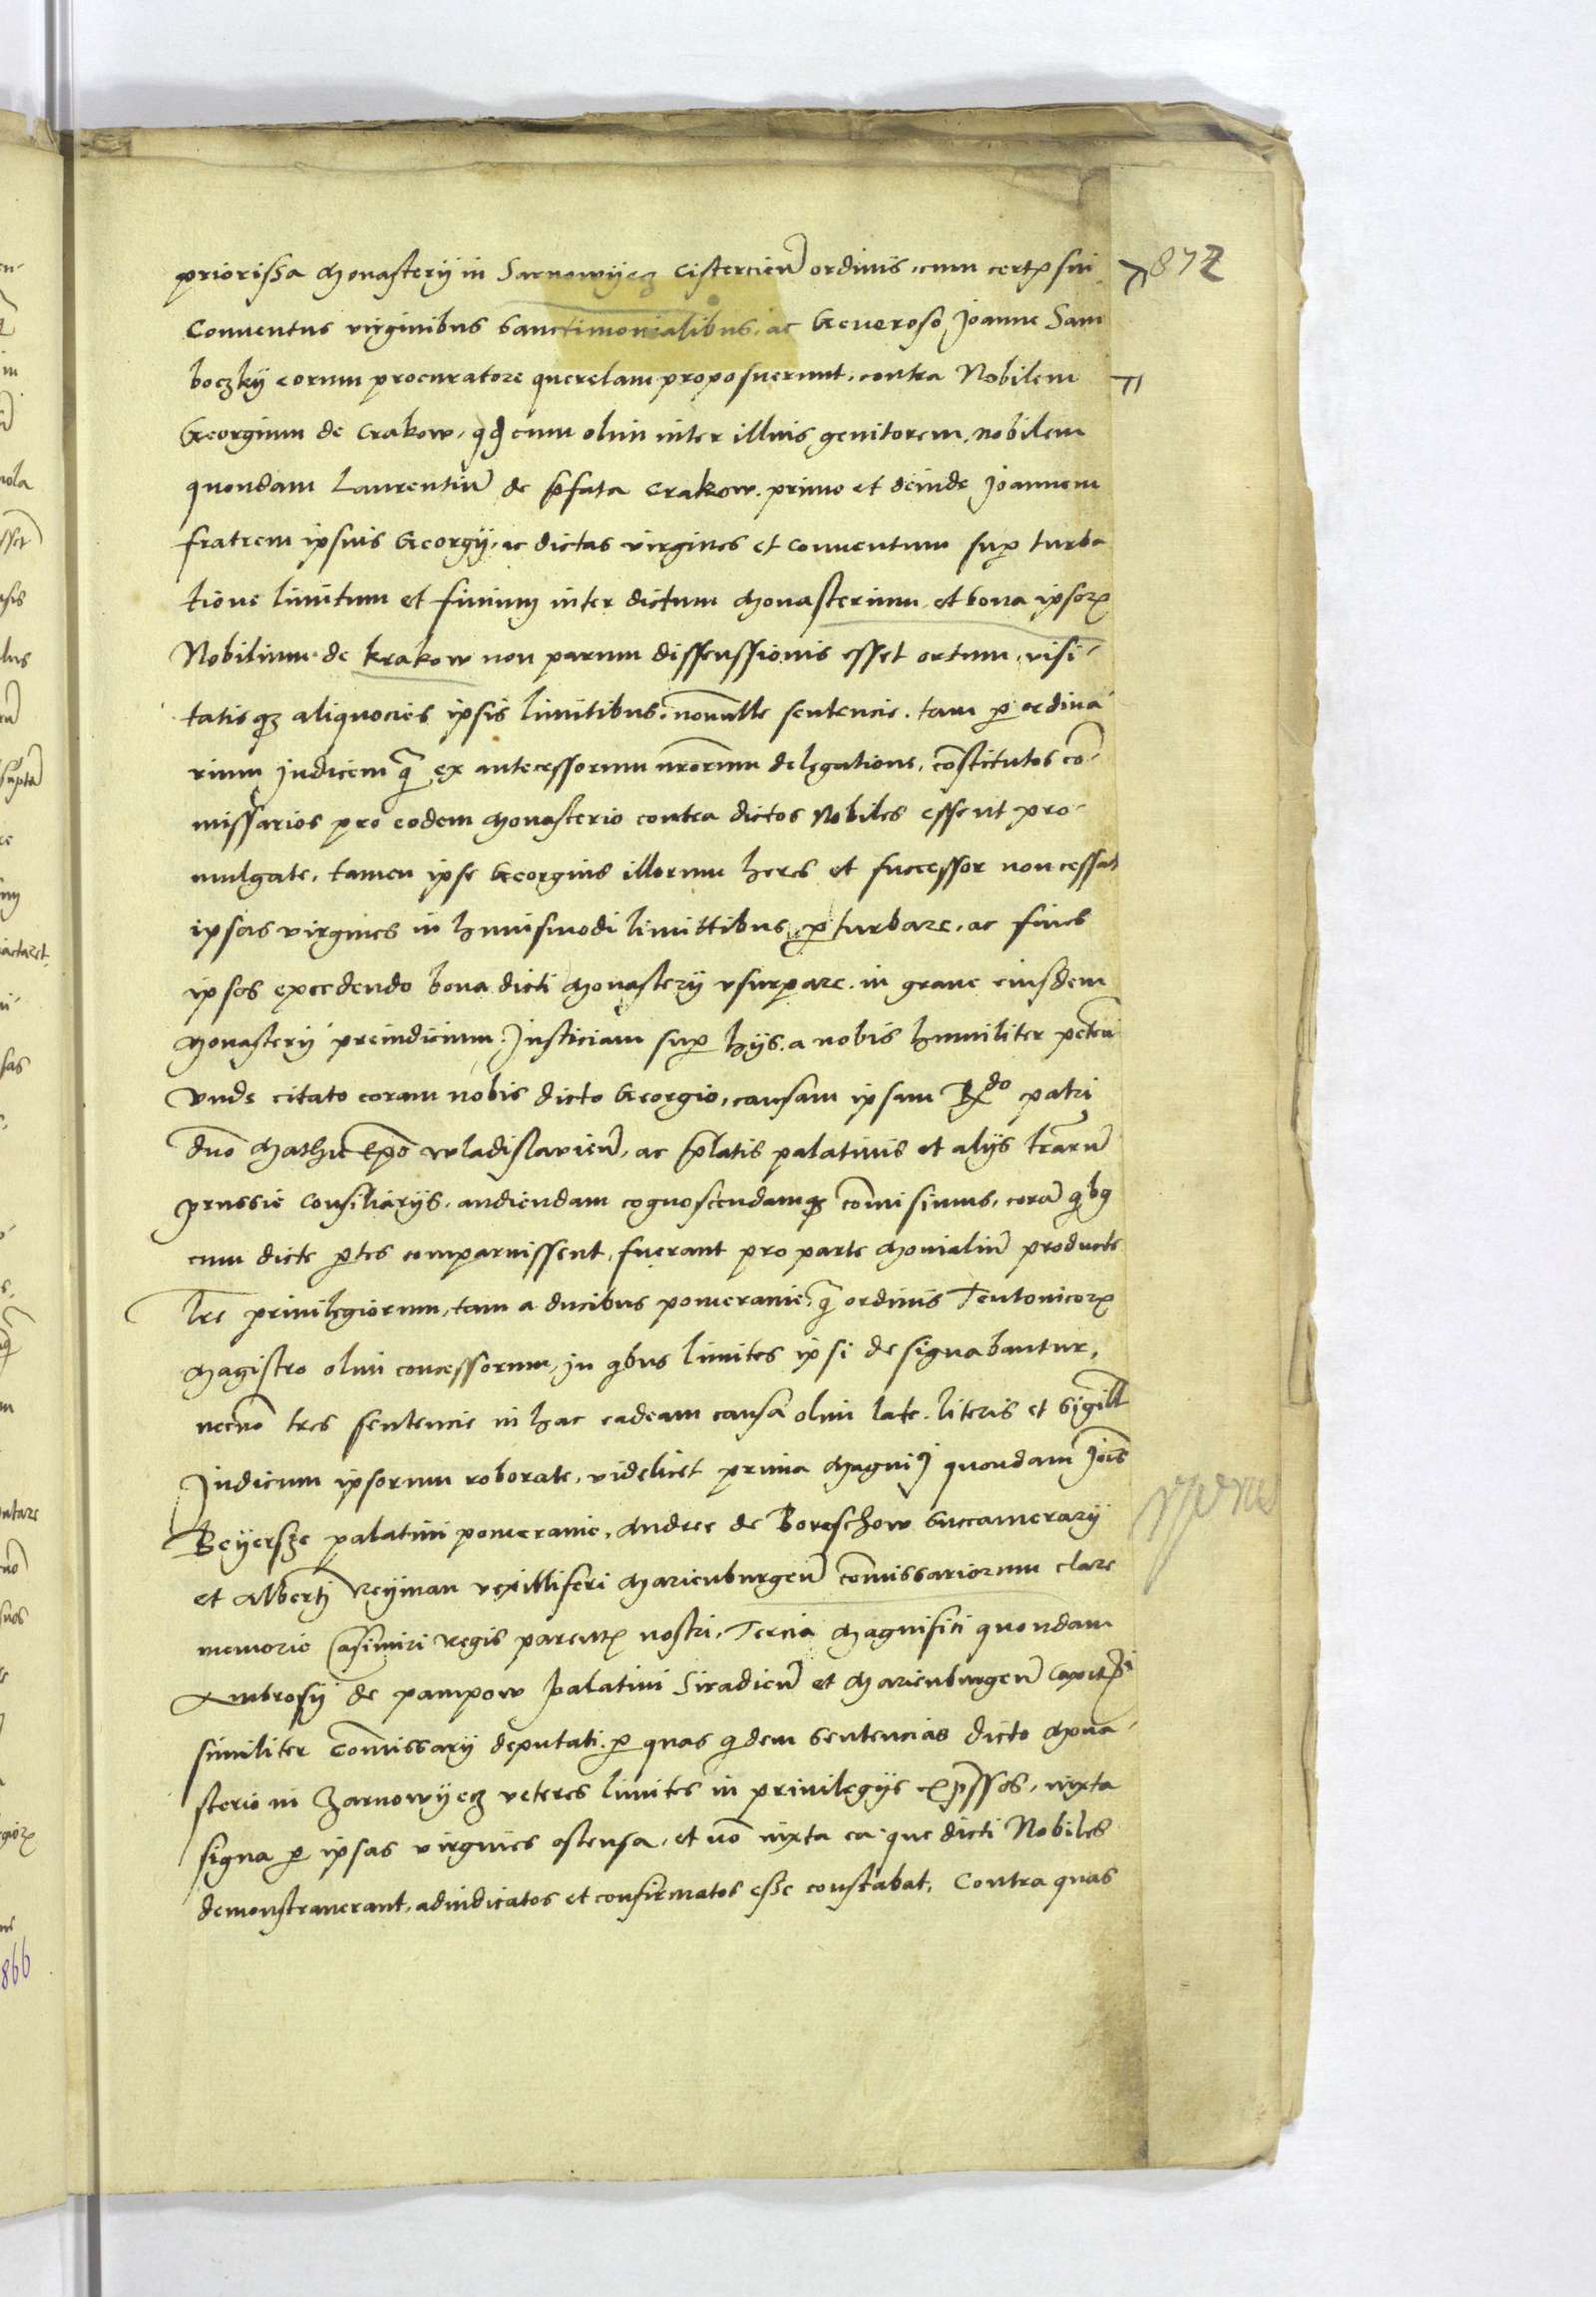 872
priorissa Monasterij in Sarnowijecz Cistercien̄ ordinis, cum cert℘ sui
Conventus virginibus Sanctimonialibus, ac Generoso Joanne Sam
boczkij eorum procuratore querelam proposuerunt, contra Nobilem
Georgium de Crakow, qd cum olim inter illius genitorem, nobilem
quondam Laurentiū de p̄fata Crakow. primo et deinde Joannem
fratrem ipsius Georgij, ac dictas virgines et conventum sup turba
tione limitum et finium inter dictum Monasterium et bona ipsoꝝ
Nobilium de Krakow non parum dissenssionis esset ortum, visi-
tatisqꝫ aliquocies ipsis limitibus, nonnulle sentencie. tam ꝑ ordina
rium Judicem q̄ ex antecessorum nrōrum delegatione, cōstitutos co-
missarios pro eodem Monasterio contra dictos Nobiles essent pro-
mulgate, tamen ipse Georgius illorum heres et successor non cessat
ipsas virgines in huiusmodi limittibus ꝑturbare, ac fines
ipsos excedendo bona dicti Monasterij usurpare. in grave eiusdem
Monasterij preiudicium. Justiciam sup hijs. a nobis humiliter petem
Unde citato coram nobis dicto Georgio, causam ipsam Rdo patri
dno Mathie Epo wladislavien̄, ac p̄latis palatinis et alijs trarū
prussie Consiliarijs. audiendam cognoscendamqꝫ com̄isimus, corā qbꝫ
cum dicte ꝑtes comparuissent, fuerant pro parte Monialiū producte
Lre privilegiorum, tam a ducibus pomeranie, q̄ ordinis Teutonicoꝝ
Magistro olim concessorum, in qbus limites ipsi designabantur,
necno tres sentencie in hac eadeam causa olim late. literis et sigill
Judicum ipsorum roborate, videlicet prima Magnici quondam Jois
Beijersze palatini pomeranie, Andree de Boreschow Succamerarij
et Alberti Reijman vexilliferi Marienburgen̄ com̄issariorum clare
memorie Casimiri regis parent℘ nostri, Tercia Magnifici quondam
Ambrosij de pampow palatini Siradien̄ et Marienburgen̄ Capit
similiter Com̄issarij deputati. ꝑ quas qdem sentencias dicto Mona-
sterio in Zarnowijecz veteres limites in privilegijs exp̄ssos, iuxta
signa ꝑ ipsas virgines ostensa, et nō iuxta ea que dicti Nobiles
demonstraverant, adiudicatos et confirmatos esse constabat, Contra quas